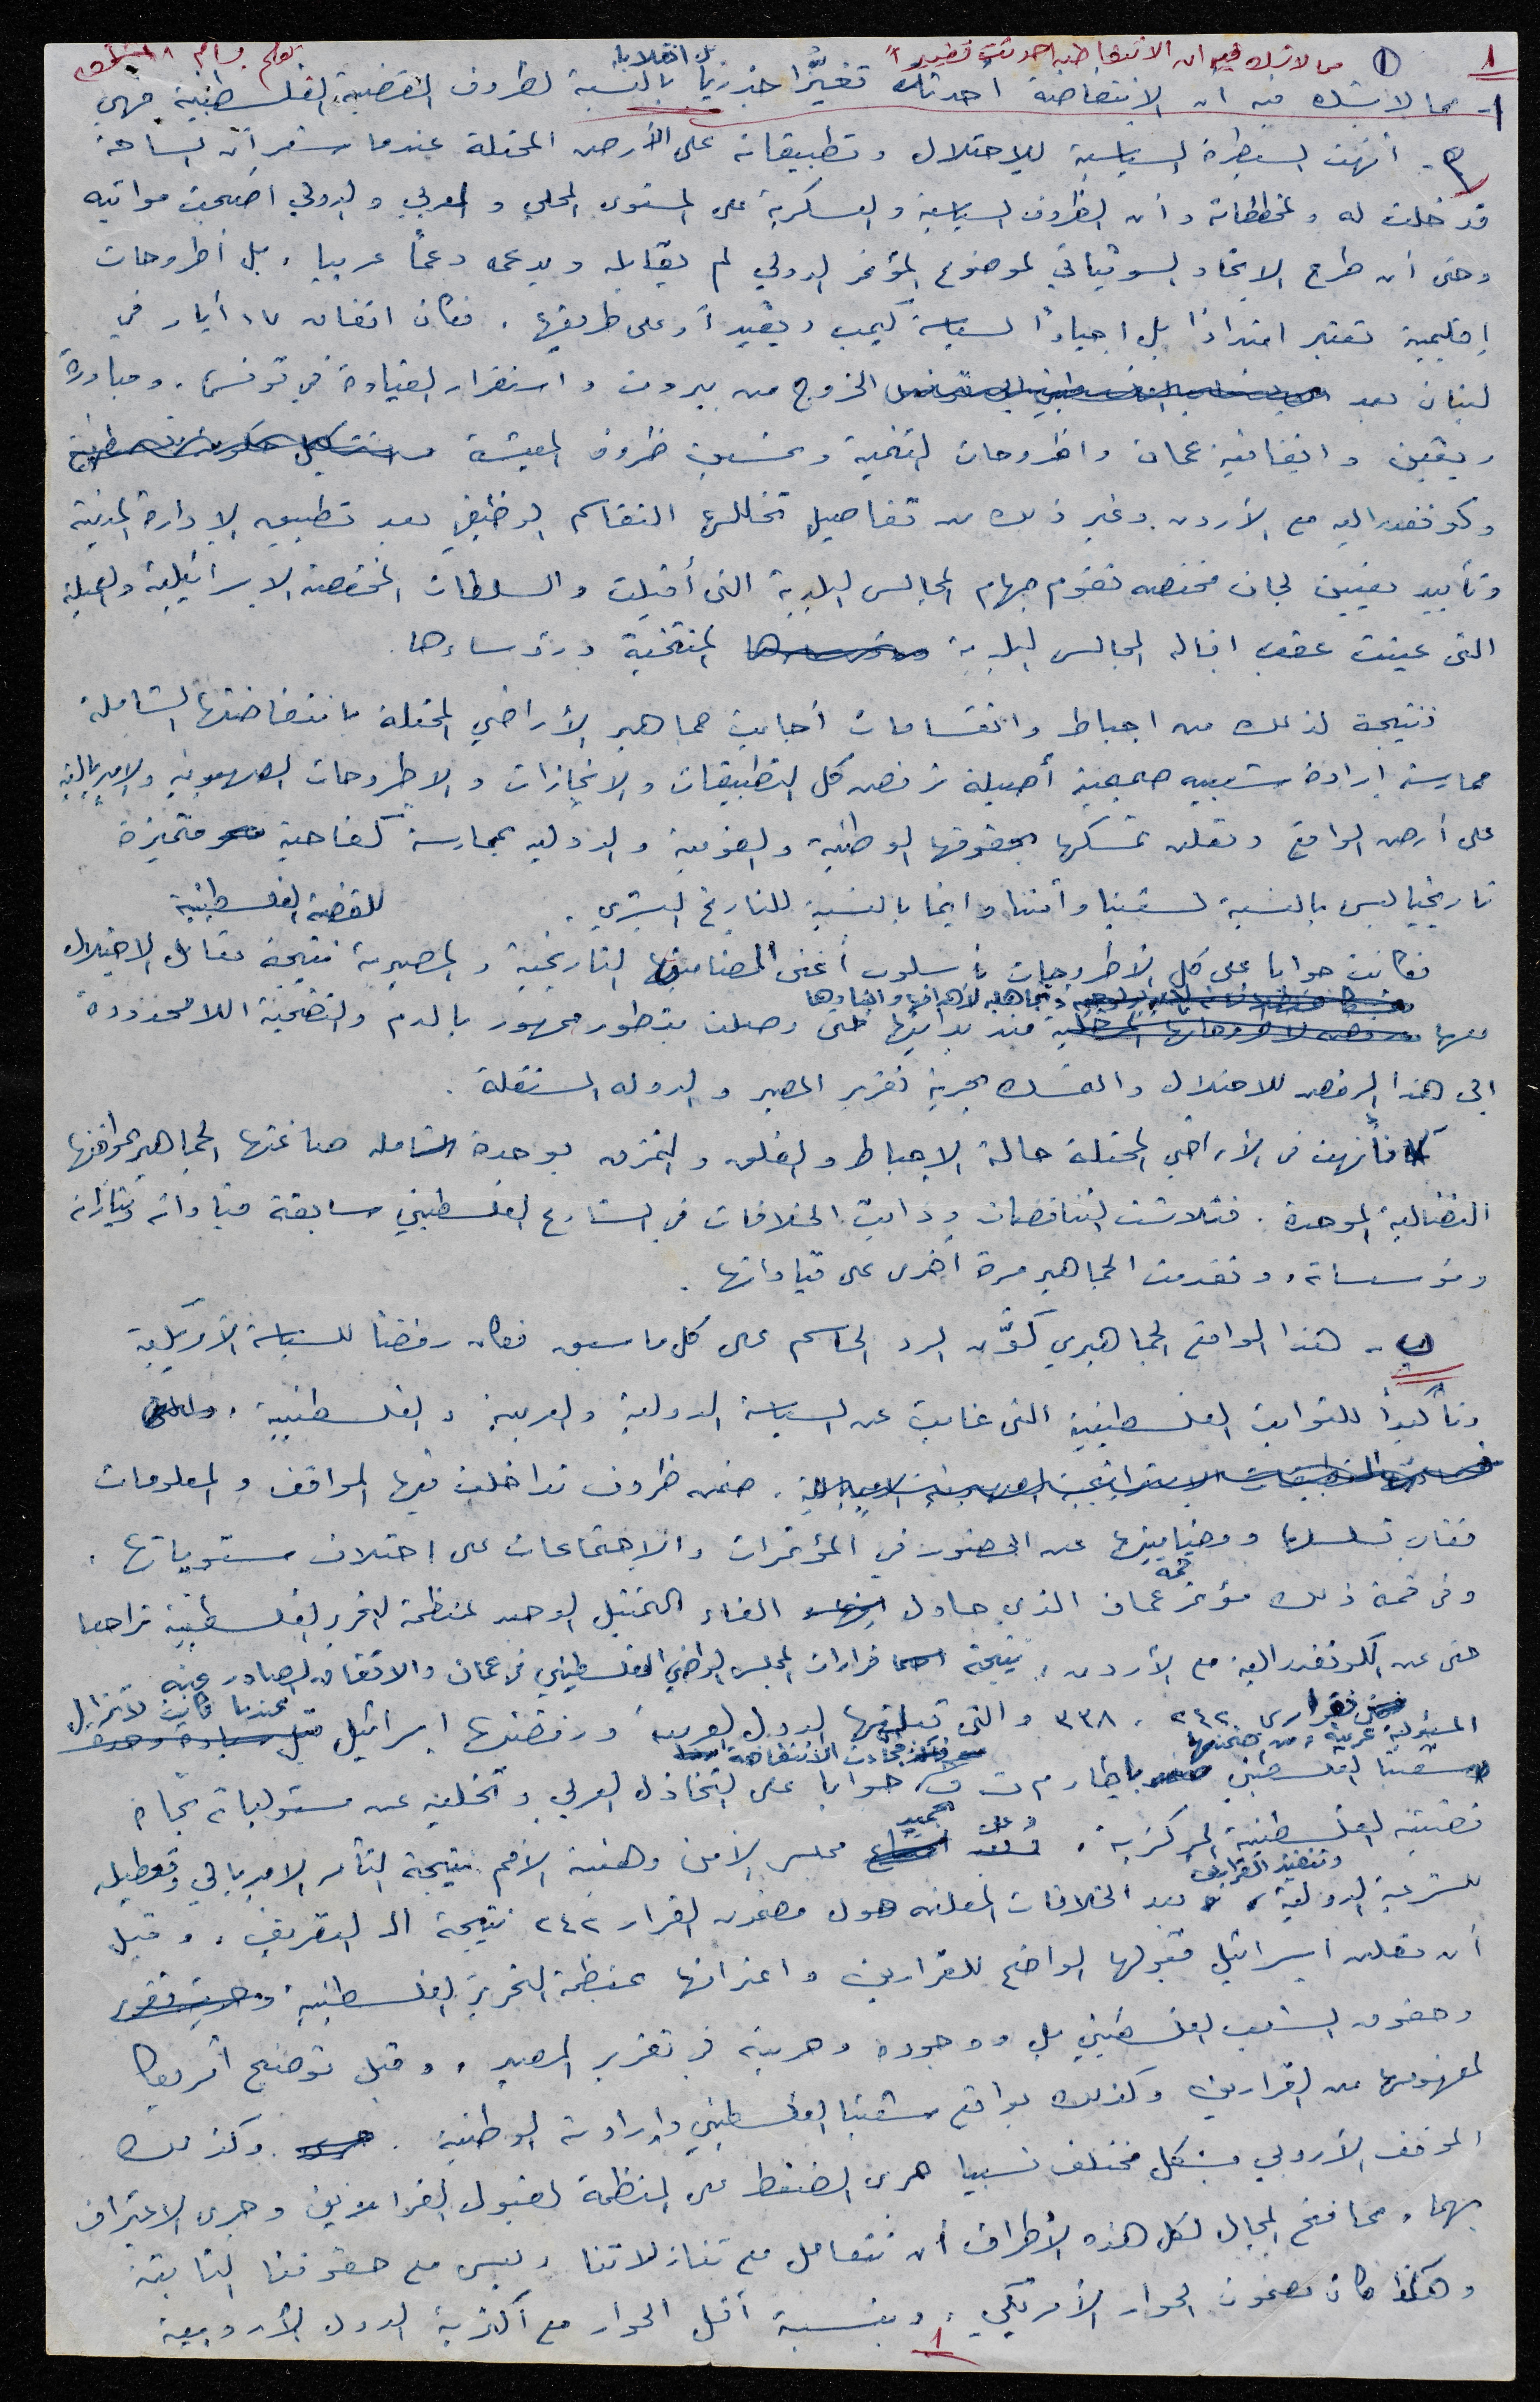 ١ ① مما لاشك فيه ان الانتفاضه احدثت تطويرا بل انقلابا بقلم بسام الشكعة
١- مما لاشك فيه ان الانتفاضة احدثت تغيّرًا جذريا بالنسبة لظروف القضية الفلسطينية فهي
أ - انهت السيطرة السياسية للاحتلال وتطبيقاته على الأرض المحتلة عندما شعر أن الساحة
قد خلت له ولمخططاته وأن الظروف السياسية والعسكرية على المستوى المحلي والعربي والدولي اضحت مواتيه
وحتى أن طرح الاتحاد السوفياتي لموضوع المؤتمر الدولي لم يقابله ويدعمه دعمًا عربيا ، بل أطروحات
إقليمية تعتبر امتدادًا بل احياءًا لسياسة كيمب ديفيد أو على طريقها . فكان اتفاق ١٧ أيار في
لبنان بعد الخروج من بيروت واستقرار القيادة في تونس ، ومبادرة
ريغين واتفاقية عمان واطروحات التنمية وتحسين ظروف المعيشة
وكونفدراليه مع الأردن . وغير ذلك من تفاصيل تخللها التقاسم الوظيفي بعد تطبيق الإدارة المدنية
وتأييد تعيين لجان مختصه تقوم بمهام المجالس البلدية التي أقيلت والسلطات المختصة الاسرائيلية والعميلة
التي عينت عقب اقالة المجالس البلدية المنتخبة ورؤساءها .
نتيجة لذلك من احباط وانقسامات أجابت جماهير الأراضي المحتلة بانتفاضتها الشاملة
ممارسة إرادة شعبيه صميمية أصيلة ترفض كل التطبيقات والانجازات والاطروحات الصهيونية والامبريالية
على أرض الواقع وتعلن تمسكها بحقوقها الوطنية والقومية والدوليه بممارسة كفاحية متميزة
تاريخيا ليس بالنسبة لشعبنا وأمتنا وانما بالنسبة للتاريخ البشري .
للقضية الفلسطينية
فكانت جوابا على كل الأطروحات بأسلوب أغنى المضامين التاريخية والمصيرية نتيجة تعامل الاحتلال
وتجاهله لأهدافها وابعادها
معها منذ بدايتها حتى وصلت بتطور ممهور بالدم والتضحية اللا محدودة
الى هذا الرفض للاحتلال والتمسك بحرية تقرير المصير والدوله المستقلة .
فأنهت في الأراضي المحتلة حالة الإحباط والقلق والتمزق بوحدة شاملة صاغتها الجماهير بمواقفها
النضالية الموحدة . فتلاشت التناقضات وذابت الخلافات في الشارع الفلسطيني سابقة قياداته وتياراته
ومؤسساته ، وتقدمت الجماهير مرة أخرى على قياداتها .
ب - هذا الواقع الجماهيري كوّن الرد الحاسم على كل ما سبق فكان رفضا للسياسة الأمريكية
وتأكيدًا للثوابت الفلسطينية التي غابت عن السياسة الدولية والعربية والفلسطينية .
ضمن ظروف تداخلت فيها المواقف والمعلومات
فغاب تسلسلها ومضامينها عن الحضور في المؤتمرات والاجتماعات على اختلاف مستوياتها .
وفي قمة ذلك مؤتمر قمة عمان الذي حاول الغاء التمثيل الوحيد لمنظمة التحرير الفلسطينية تراجعا
حتى عن الكونفدرالية مع الأردن ، نتيجة قرارات المجلس الوطني الفلسطيني في عمان والاتفاق الصادر عنه
قراري ٢٤٢ ، ٣٣٨ والتي تبنتها الدول العربية ورفضتها اسرائيل عندما كانت لاتزال
المسئولية عربية ، من ضمنها
شعبنا الفلسطيني باطار م ت ف فجاءت الانتفاضة جوابا على التخاذل العربي وتخليه عن مسئولياته تجاه
قضيته الفلسطينية المركزية ، وعلى تجميد مجلس الأمن وهيئة الأمم نتيجة التآمر الامبريالي وتعطيله
للشرعية الدولية ، وتنفيذ القرارين بعد الخلافات المعلنه حول مضمون القرار ٢٤٢ نتيجة الـ التعريف ، وقبل
أن تعلن اسرائيل قبولها الواضح للقرارين واعترافها بمنظمة التحرير الفلسطينية
وحقوق الشعب الفلسطيني بل ووجوده وحريته في تقرير المصير ، وقبل توضيح أمريكا
لمفهومها من القرارين وكذلك بواقع شعبنا الفلسطيني وإرادته الوطنية . وكذلك
الموقف الأروبي وبشكل مختلف نسبيا جرى الضغط على المنظمة لقبول القرارين وجرى الاعتراف
بهما ، مما افسح المجال لكل هذه الأطراف أن تتعامل مع تنازلاتنا وليس مع حقوقنا الثابتة
وهكذا كان مضمون الحوار الأمريكي ، وبنسبة أقل الحوار مع أكثرية الدول الأروبية
١